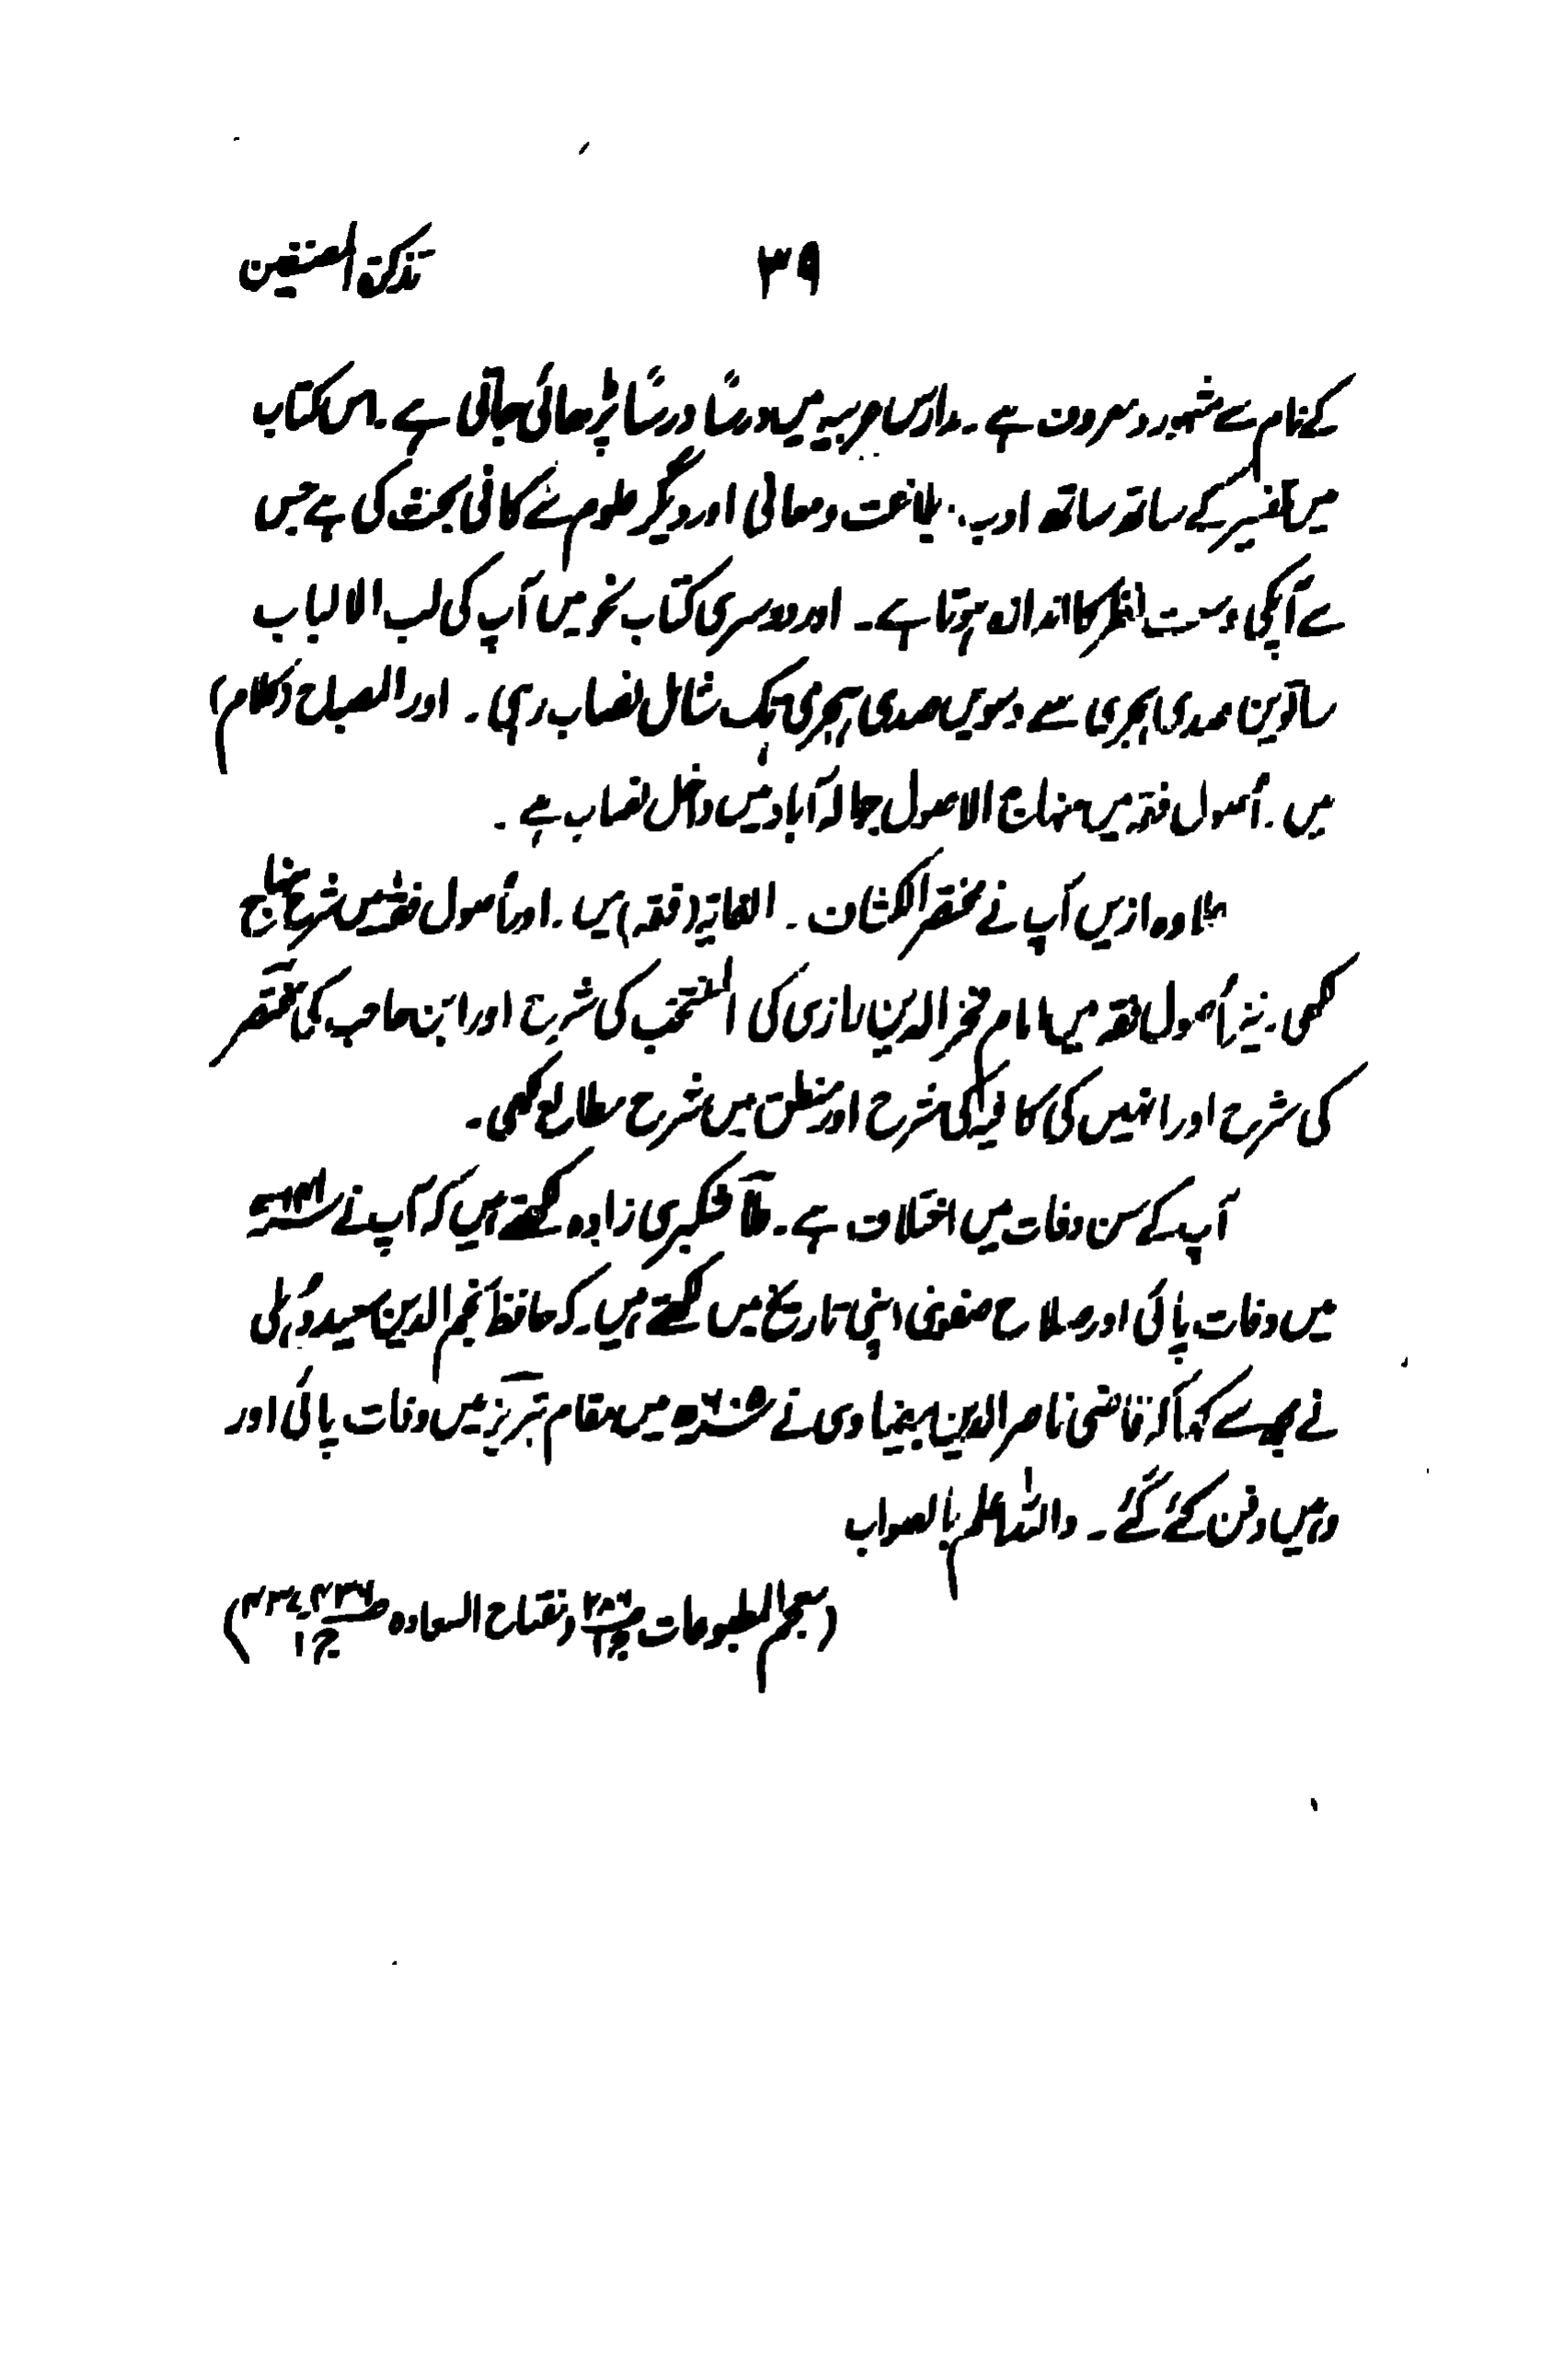 تذکرۃ المصنفین ۳۹
کے نام سے مشہور و معروف ہے۔ مدارس عربیہ میں درسًا درسًا پڑھائی جاتی ہے۔ اس کتاب
میں تفسیر کے ساتھ ساتھ ادب، بلاغت و معانی اور دیگر علوم نے کافی بحث کی ہے جس
سے آپکی وسعت نظر کا اندازہ ہوتا ہے۔ اور دوسری کتاب نحو میں آپ کی لب الالباب
ساتویں صدی ہجری سے دسویں صدی ہجری تک شامل نصاب رہی۔ اور المصباح (کلام)
میں۔ اُصول فقہ میں منہاج الاصول جلال آباد میں داخل نصاب ہے۔
علاوہ ازیں آپ نے مختصر الکشاف۔ الغایۃ (فقہ) میں۔ اور اُصول فقہ میں شرح منہاج
لکھی۔ نیز اُصول فقہ میں امام فخر الدین رازی کی المنتخب کی شرح اور ابن حاجب کی مختصر
کی شرح اور انہیں کی کافیہ کی شرح اور منطق میں شرح مطالع لکھی۔
آپ کے سن وفات میں اختلاف ہے۔ ملا طکبری زادہ لکھتے ہیں کہ آپ نے
میں وفات پائی اور صلاح صفوی اپنی تاریخ میں لکھتے ہیں۔ کہ حافظ نجم الدین سعید دہلی
نے مجھ سے کہا کہ قاضی ناصر الدین بیضاوی نے میں مقام تبریز میں وفات پائی اور
وہیں دفن کئے گئے۔ واللہ اعلم بالصواب
(معجم المطبوعات ومفتاح السعادہ)